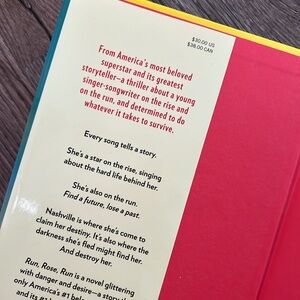 $30.00 US
$38.00 CAN
From America's most beloved
superstar and its greatest
storyteller—a thriller about a young
singer-songwriter on the rise and
on the run, and determined to do
whatever it takes to survive.
Every song tells a story.
She's a star on the rise, singing
about the hard life behind her.
She's also on the run.
Find a future, lose a past.
Nashville is where she's come to
claim her destiny. It's also where the
darkness she's fled might find her.
And destroy her.
Run, Rose, Run is a novel glittering
with danger and desire—a story that
only America's #1 belo
and its #1